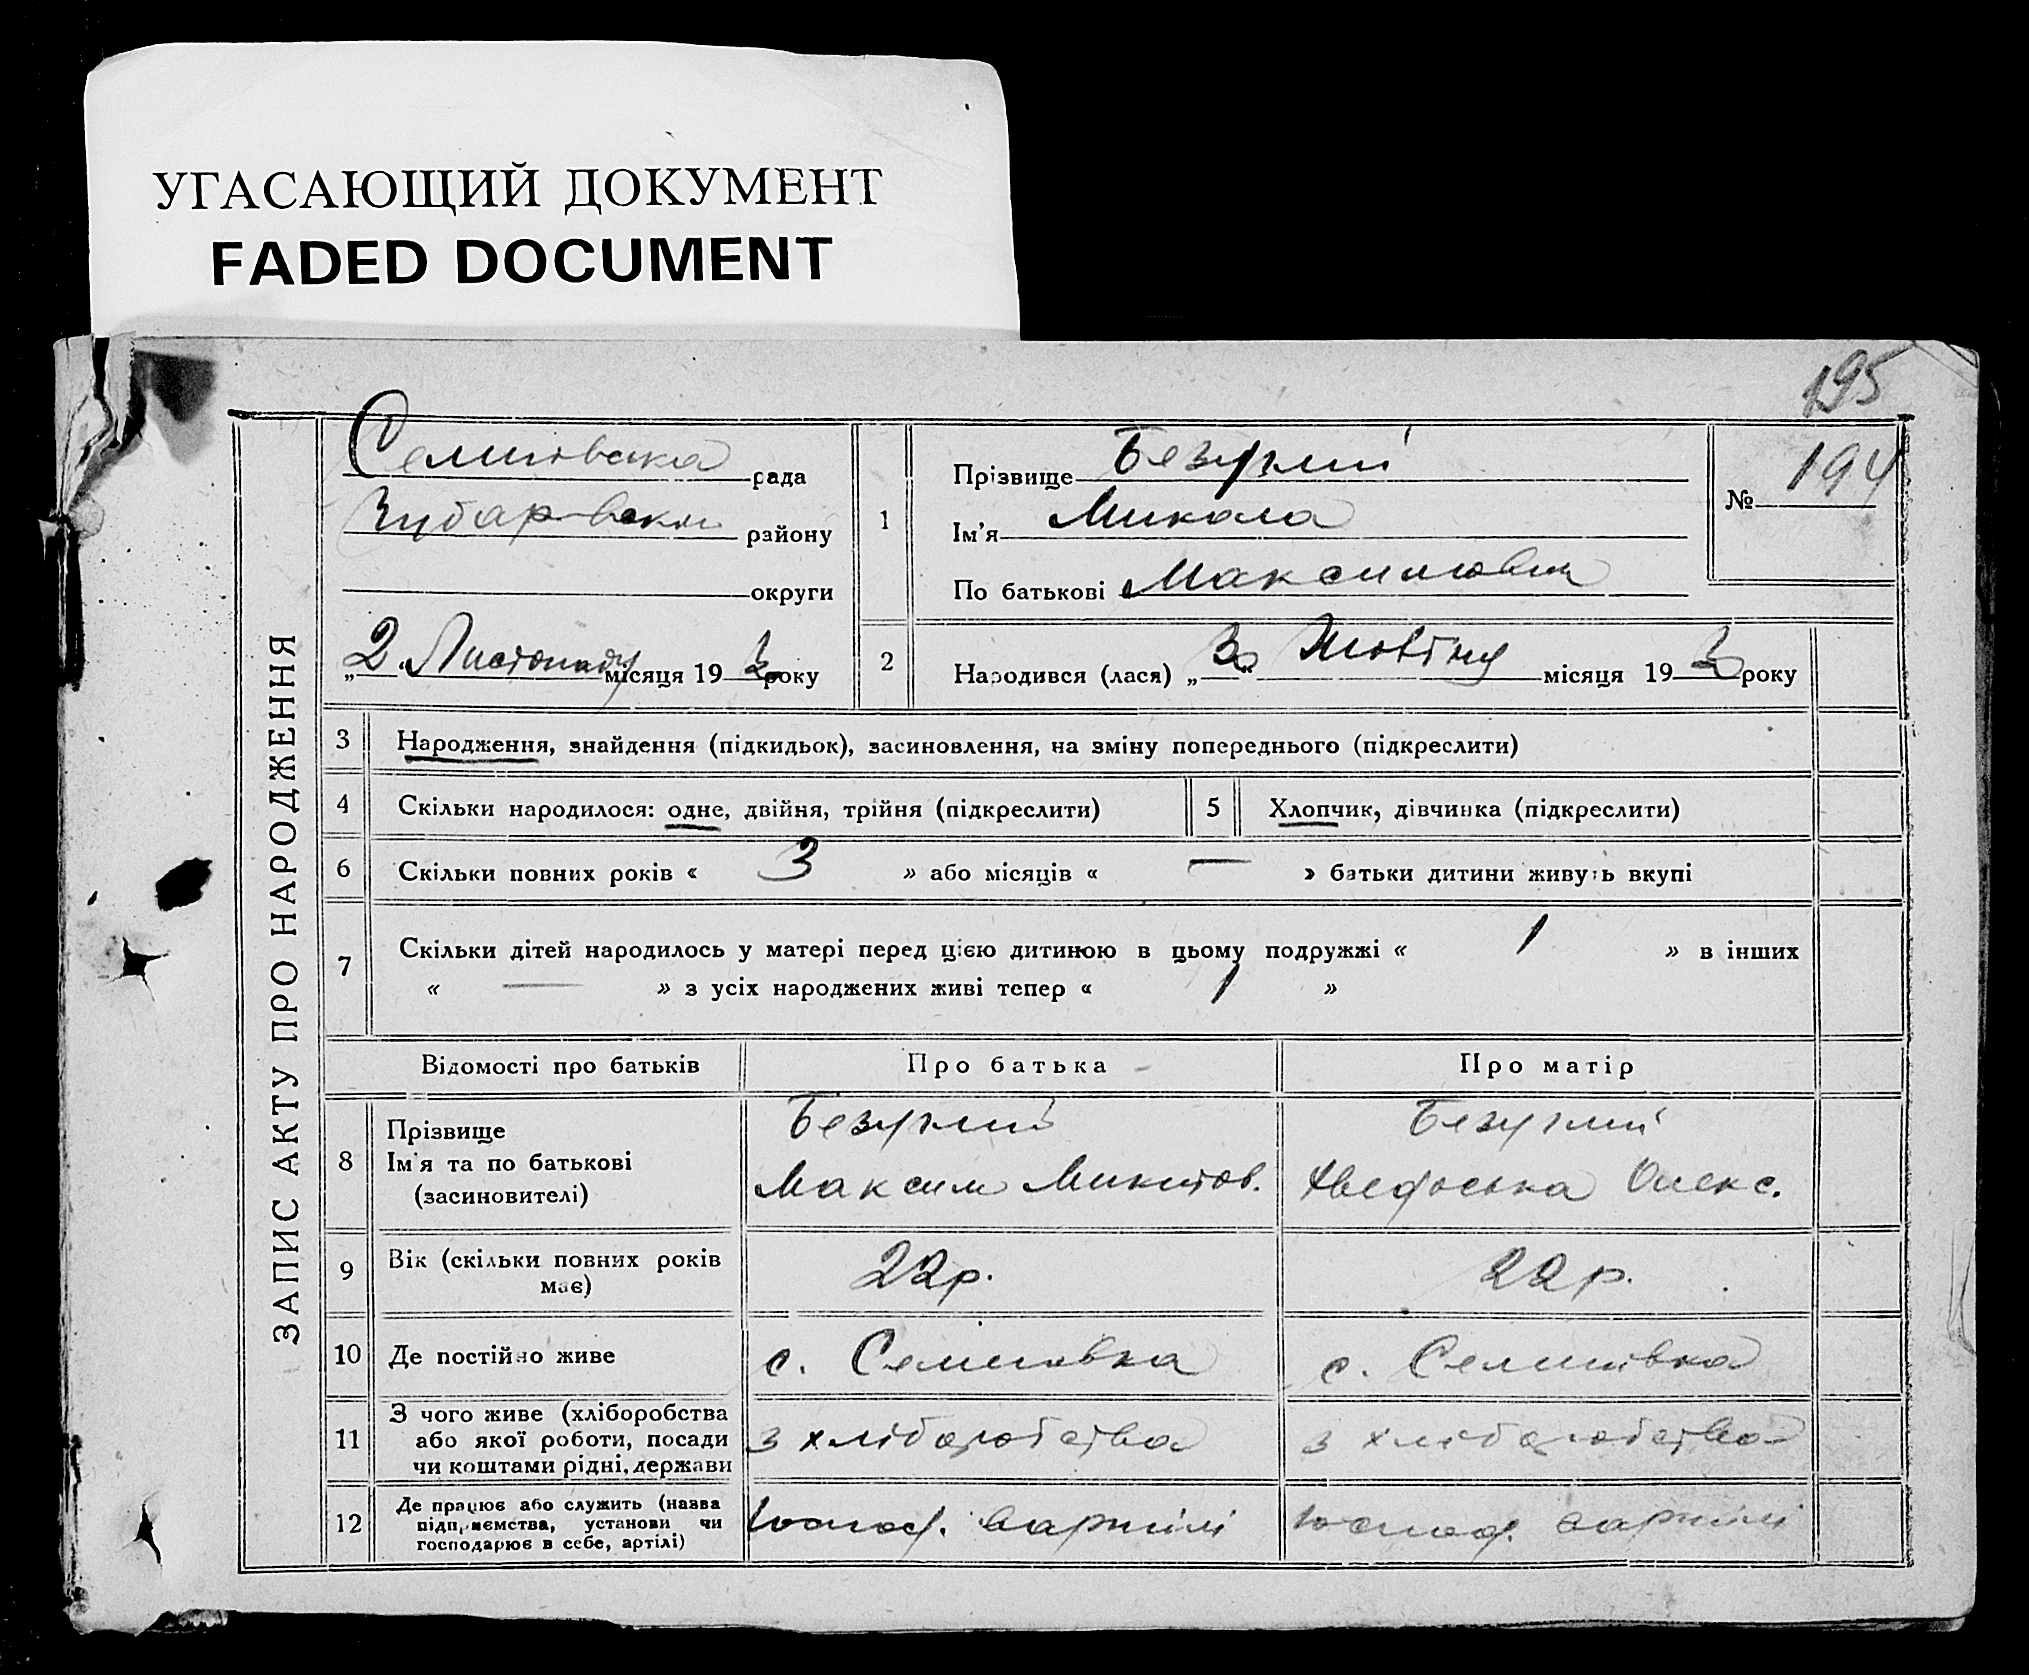 УГАСАЮЩИЙ ДОКУМЕНТ
FADED DOCUMENT
195
ЗАПИС АКТУ ПРО НАРОДЖЕННЯ
Семенівська рада
району
округи
„2“ Листопаду місяця 193 року
1
Прізвище Безуглий
Ім'я Микола
По батькові Максимович
№ 194
2
Народився (лася) „30“ Жовтну місяця 193 року
3 Народження, знайдення (підкидьок), засиновлення, на зміну попереднього (підкреслити)
4 Скільки народилося: одне, двійня, трійня (підкреслити)
5 Хлопчик, дівчинка (підкреслити)
6 Скільки повних років « 3 » або місяців « — » батьки дитини живуть вкупі
7 Скільки дітей народилось у матері перед цією дитиною в цьому подружжі « 1 » в інших
« — » з усіх народжених живі тепер « 1 »
Відомості про батьків Про батька Про матір
8 Прізвище Безуглий Безуглий
Ім'я та по батькові Максим Микитов. Олекс.
(засиновителі)
9 Вік (скільки повних років має) 22р. 22р.
10 Де постійно живе с. Семенівка с. Семенівка
11 З чого живе (хліборобства
або якої роботи, посади
чи коштами рідні, держави
з хліборобства з хліборобства
12 Де працює або служить (назва
підприємства, установи чи
господарює в себе, артілі)
господ. в артілі господ. в артілі